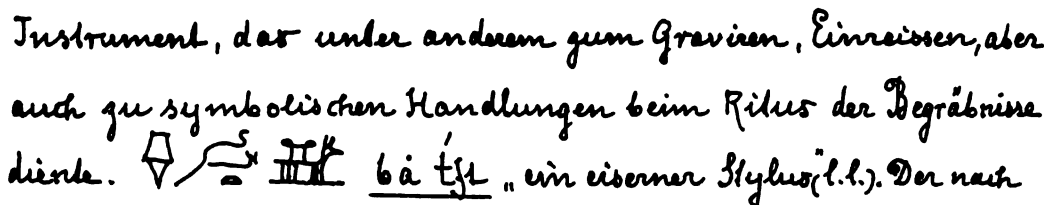 Instrument, das unter anderem zum Graviren, Einreissen, aber
auch zu symbolischen Handlungen beim Ritus der Begräbnisse
diente. „ein eiserner Stylus“(l.l.). Der nach